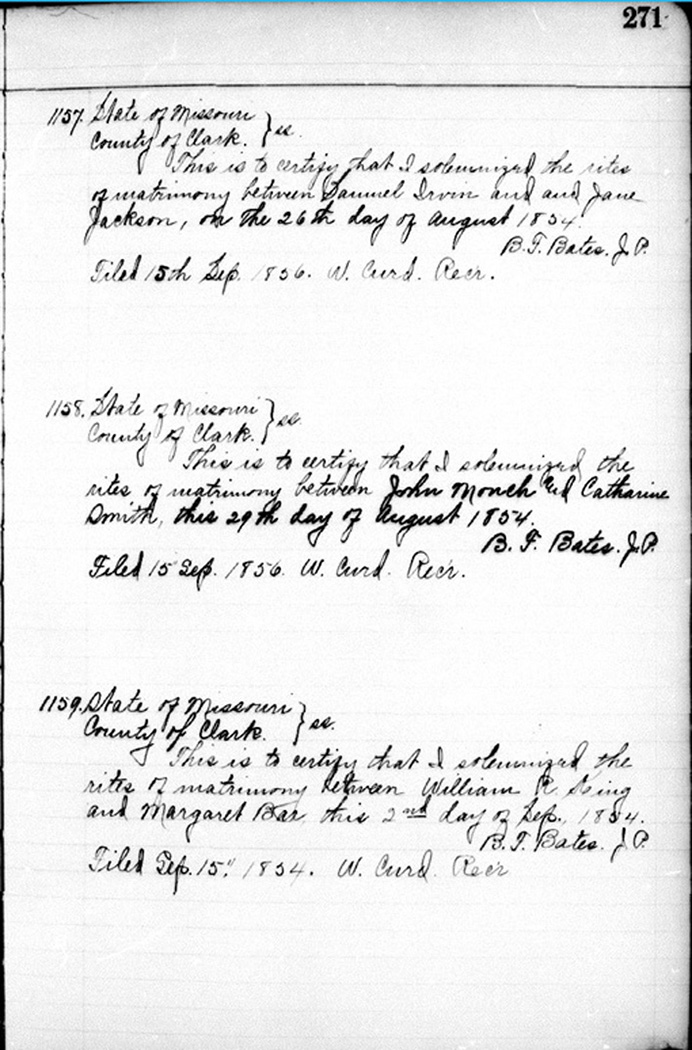 271
1157. State of Missouri
County of Clark. } ss.
This is to certify that I solemnized the rites
of matrimony between Samuel Irvin and and Jane
Jackson, on the 26th day of August 1854.
B. F. Bates. J. P.
Filed 15th Sep. 1856. W. Curd. Recr.
1158. State of Missouri
County of Clark. } ss.
This is to certify that I solemnized the
rites of matrimony between John Monch and Catharine
Smith, this 29th day of August 1854.
B. F. Bates. J. P.
Filed 15 Sep. 1856. W. Curd. Recr.
1159. State of Missouri
County of Clark. } ss.
This is to certify that I solemnized the
rites of matrimony between William R. King
and Margaret Bar, this 2nd day of Sep., 1854.
B. F. Bates. J. P.
Filed Sep. 15." 1854. W. Curd. Recr